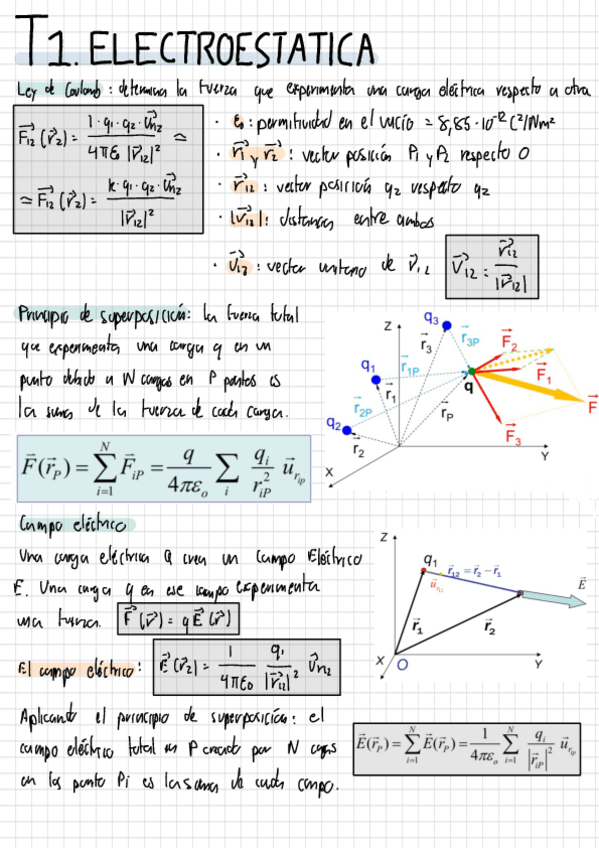 T1. ELECTROESTATICA
Ley de Coulomb: determina la fuerza que experimenta una carga eléctrica respecto a otra
F⃗12 (r⃗2) = 1·q1·q2·u⃗r12 / 4πε0 |r⃗12|² ≃
≃ F⃗12 (r⃗2) = k·q1·q2·u⃗12 / |r⃗12|²
· ε0: permitividad en el vacío = 8,85·10⁻¹² C²/Nm²
· r⃗1 y r⃗2: vector posición P1 y P2 respecto O
· r⃗12: vector posición q2 respecto q2
· |r⃗12|: distancia entre ambos
· u⃗12: vector unitario de r⃗12
u⃗12 = r⃗12 / |r⃗12|
Principio de superposición: la fuerza total
que experimenta una carga q en un
punto debido a N cargas en P puntos es
la suma de la fuerza de cada carga.
F⃗(r⃗P) = Σ i=1 N F⃗iP = q / 4πεo Σ i qi / r²iP u⃗riP
Z
q3
r⃗3
r⃗3P
F⃗2
q1
r⃗1P
F⃗1
q
r⃗1
F⃗
q2
r⃗2P
r⃗P
F⃗3
r⃗2
X
Y
Campo eléctrico
Una carga eléctrica Q crea un Campo Eléctrico
E. Una carga q en ese campo experimenta
una fuerza. F⃗(r⃗) = qE⃗(r⃗)
El campo eléctrico: E⃗(r⃗2) = 1 / 4πε0 q1 / |r⃗12|² u⃗r12
Z
q1
r⃗12 = r⃗2 − r⃗1
u⃗r12
E⃗
r⃗1
r⃗2
X
O
Y
Aplicando el principio de superposición: el
campo eléctrico total en P creado por N cargas
en los punto Pi es la suma de cada campo.
E⃗(r⃗P) = Σ i=1 N E⃗(r⃗P) = 1 / 4πεo Σ i=1 N qi / |r⃗iP|² u⃗riP